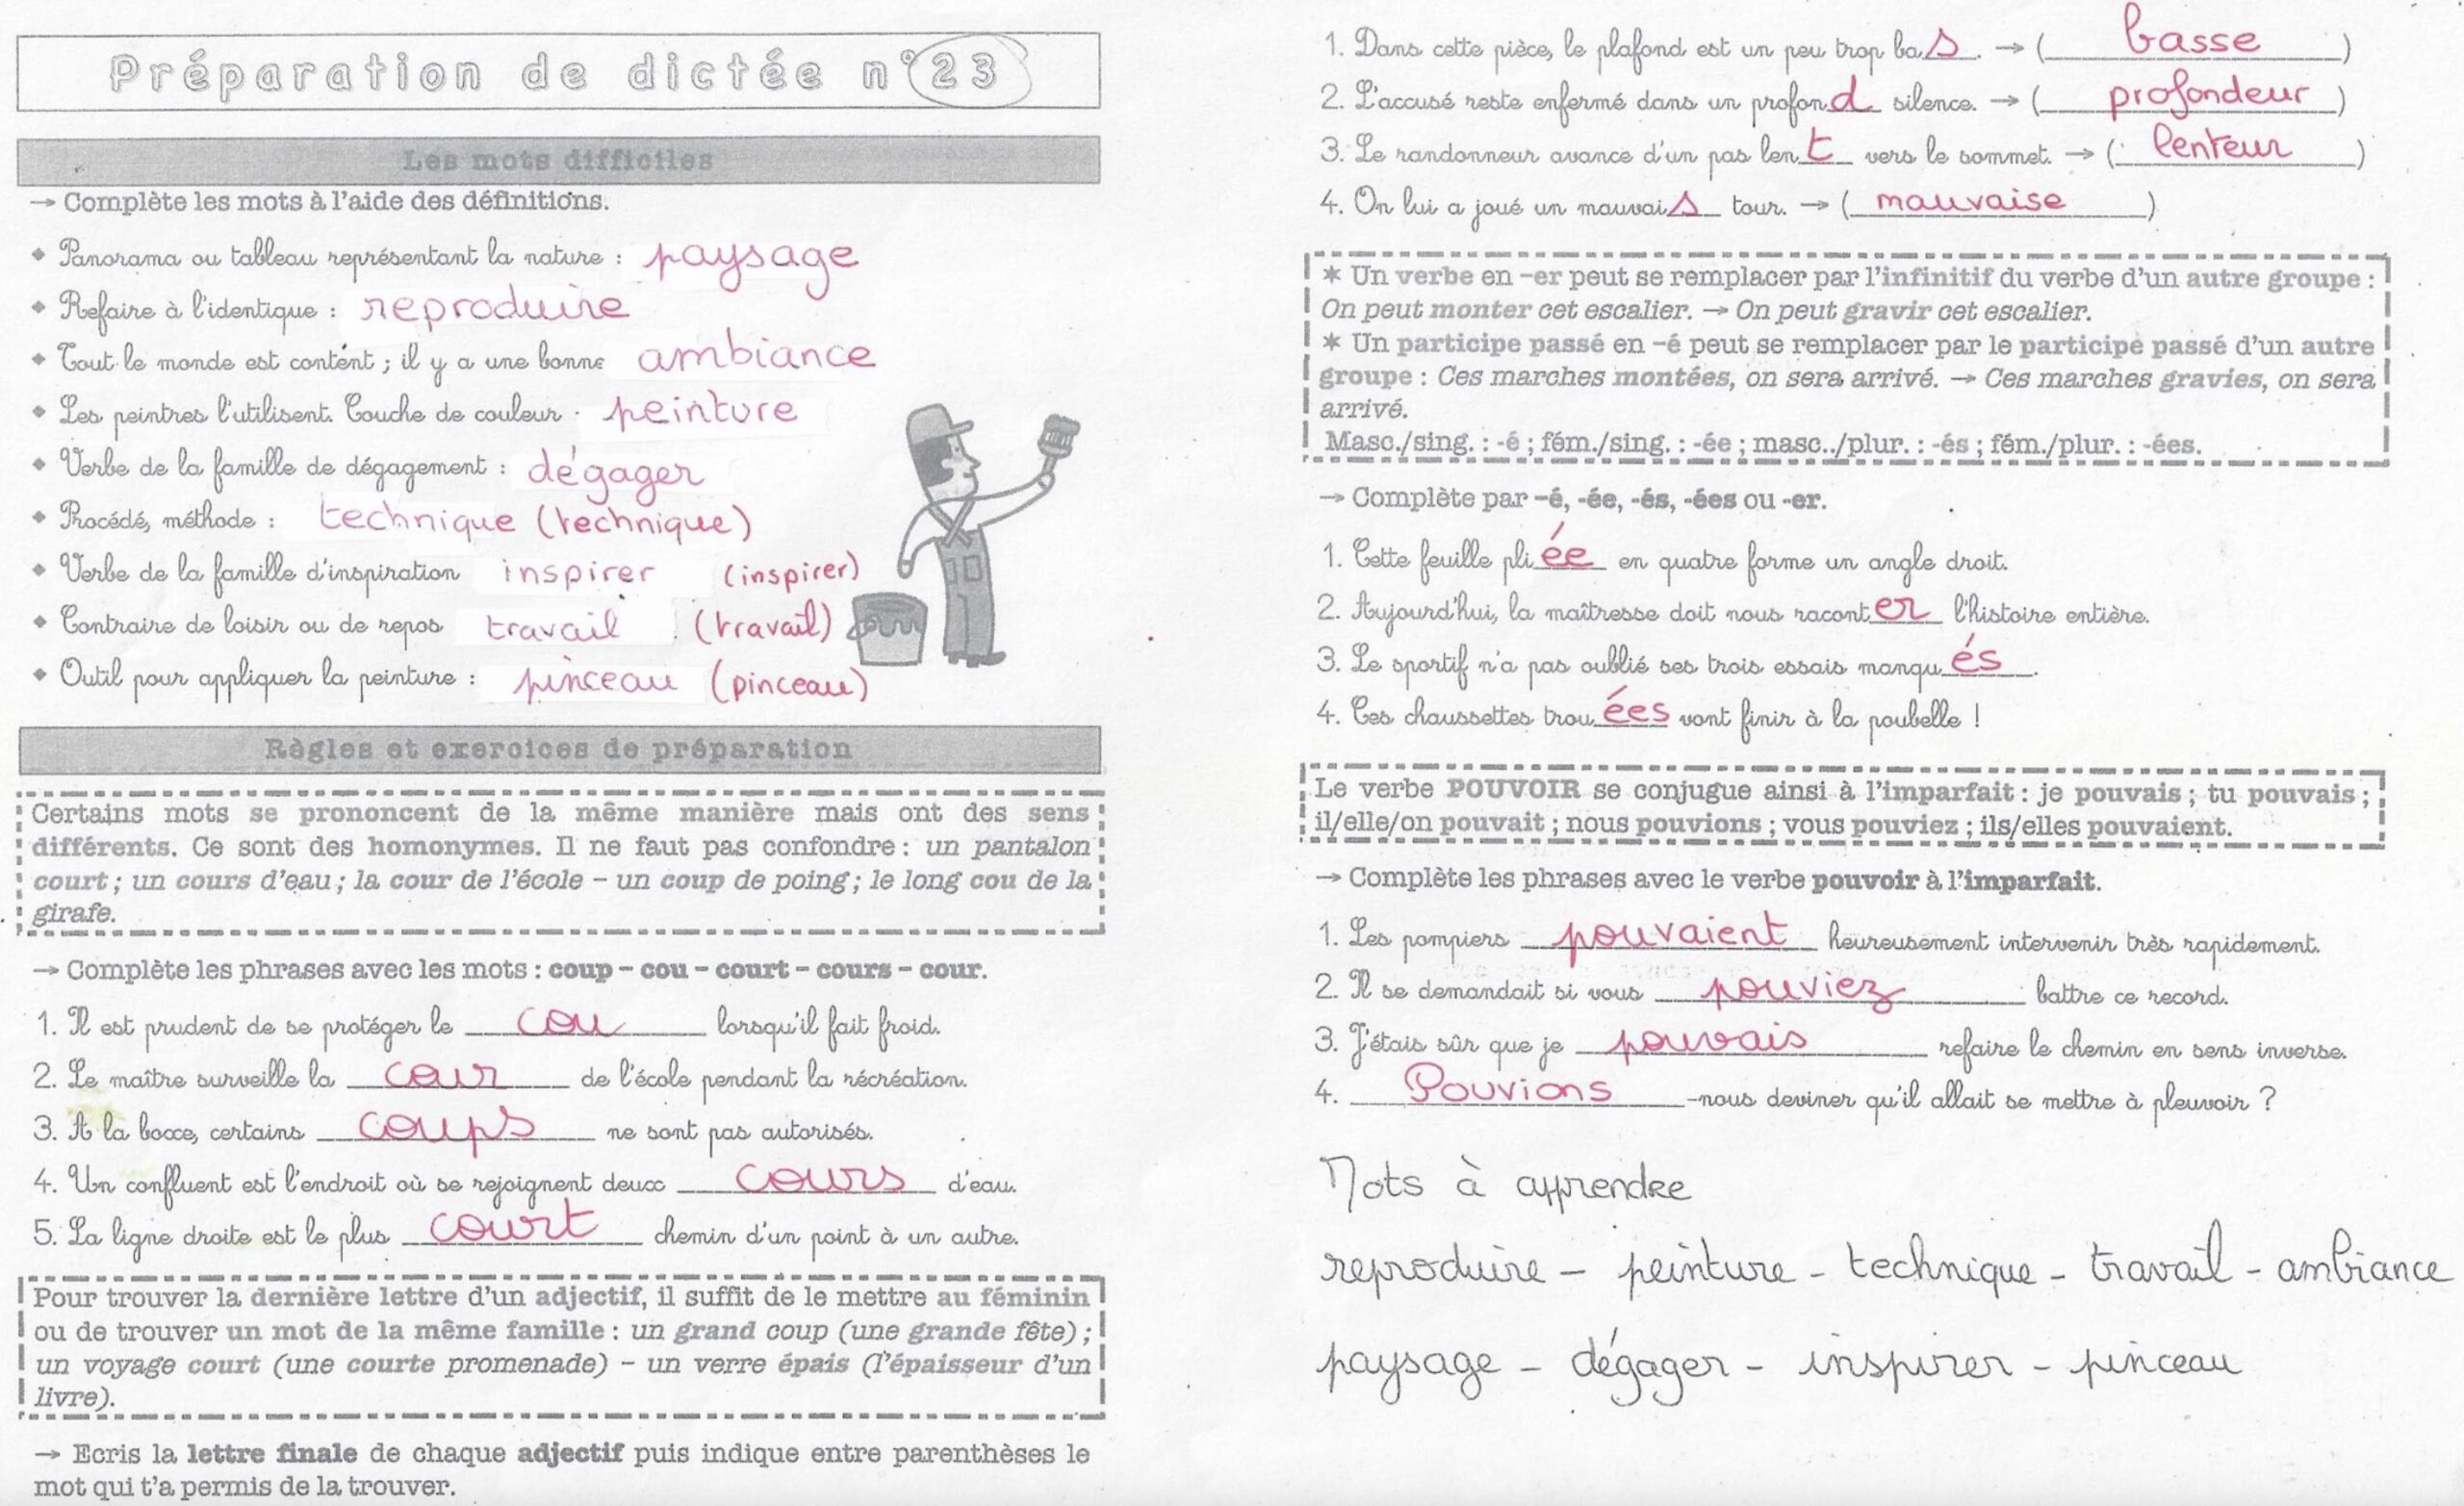 Préparation de dictée n°23
Les mots difficiles
→ Complète les mots à l'aide des définitions.
◆ Panorama ou tableau représentant la nature : paysage
◆ Refaire à l'identique : reproduire
◆ Tout le monde est content ; il y a une bonne ambiance
◆ Les peintres l'utilisent. Couche de couleur · peinture
◆ Verbe de la famille de dégagement : dégager
◆ Procédé, méthode : technique (technique)
◆ Verbe de la famille d'inspiration inspirer (inspirer)
◆ Contraire de loisir ou de repos travail (travail)
◆ Outil pour appliquer la peinture : pinceau (pinceau)
Règles et exercices de préparation
Certains mots se prononcent de la même manière mais ont des sens
différents. Ce sont des homonymes. Il ne faut pas confondre : un pantalon
court ; un cours d'eau ; la cour de l'école – un coup de poing ; le long cou de la
girafe.
→ Complète les phrases avec les mots : coup – cou – court – cours – cour.
1. Il est prudent de se protéger le cou lorsqu'il fait froid.
2. Le maître surveille la cour de l'école pendant la récréation.
3. A la boxe, certains coups ne sont pas autorisés.
4. Un confluent est l'endroit où se rejoignent deux cours d'eau.
5. La ligne droite est le plus court chemin d'un point à un autre.
Pour trouver la dernière lettre d'un adjectif, il suffit de le mettre au féminin
ou de trouver un mot de la même famille : un grand coup (une grande fête) ;
un voyage court (une courte promenade) – un verre épais (l'épaisseur d'un
livre).
→ Ecris la lettre finale de chaque adjectif puis indique entre parenthèses le
mot qui t'a permis de la trouver.
1. Dans cette pièce, le plafond est un peu trop bas. → (basse)
2. L'accusé reste enfermé dans un profond silence. → (profondeur)
3. Le randonneur avance d'un pas lent vers le sommet. → (lenteur)
4. On lui a joué un mauvais tour. → (mauvaise)
✶ Un verbe en –er peut se remplacer par l'infinitif du verbe d'un autre groupe :
On peut monter cet escalier. → On peut gravir cet escalier.
✶ Un participe passé en –é peut se remplacer par le participe passé d'un autre
groupe : Ces marches montées, on sera arrivé. → Ces marches gravies, on sera
arrivé.
Masc./sing. : -é ; fém./sing. : -ée ; masc../plur. : -és ; fém./plur. : -ées.
→ Complète par –é, -ée, -és, -ées ou -er.
1. Cette feuille pliée en quatre forme un angle droit.
2. Aujourd'hui, la maîtresse doit nous raconter l'histoire entière.
3. Le sportif n'a pas oublié ses trois essais manqués.
4. Ces chaussettes trouées vont finir à la poubelle !
Le verbe POUVOIR se conjugue ainsi à l'imparfait : je pouvais ; tu pouvais ;
il/elle/on pouvait ; nous pouvions ; vous pouviez ; ils/elles pouvaient.
→ Complète les phrases avec le verbe pouvoir à l'imparfait.
1. Les pompiers pouvaient heureusement intervenir très rapidement.
2. Il se demandait si vous pouviez battre ce record.
3. J'étais sûr que je pouvais refaire le chemin en sens inverse.
4. Pouvions-nous deviner qu'il allait se mettre à pleuvoir ?
Mots à apprendre
reproduire – peinture – technique – travail – ambiance
paysage – dégager – inspirer – pinceau